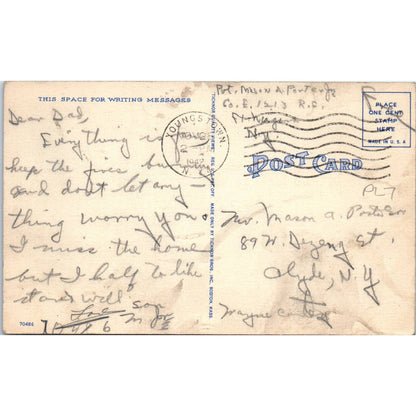 THIS SPACE FOR WRITING MESSAGES
Dear Dad,
Everything is
keep the fires burning
and dont let any-
thing worry you.
I miss the home
but I half to like
stand well
son
TICHNOR QUALITY VIEWS
MADE ONLY BY TICHNOR BROS., INC., BOSTON, MASS.
70486
Pvt. Mason A. Porter Jr.
Co. E. 1213 R.C.
N.Y.
YOUNGSTOWN
N.Y.
PLACE
ONE CENT
STAMP
HERE
MADE IN U.S.A
POST CARD
PLT
Mason A. Porter Sr.
89 W. St.
Clyde, N.Y
Wayne